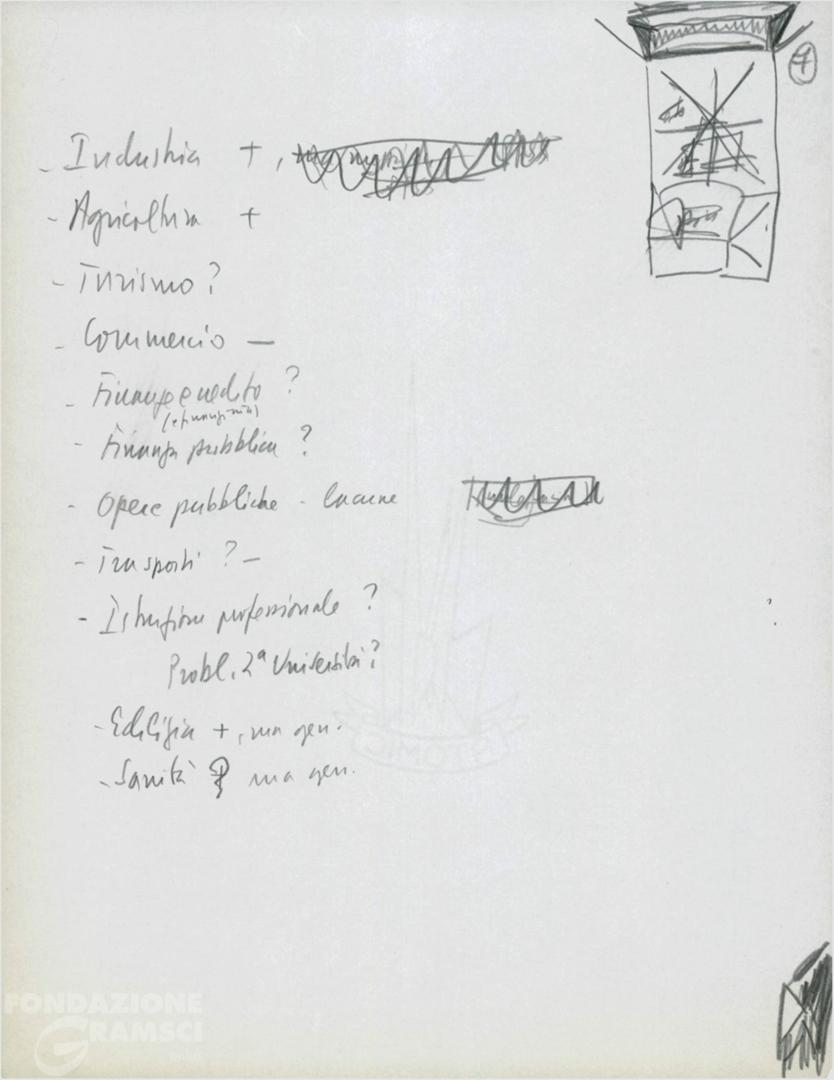 7
- Industria +,
- Agricoltura +
- Turismo ?
- Commercio —
- Finanze e credito ?
- Finanza pubblica ?
- Opere pubbliche - lacune
- Trasporti ? —
- Istruzione professionale ?
Probl. 2ª Università ?
- Edilizia +, ma gen.
- Sanità ? ma gen.
FONDAZIONE
GRAMSCI